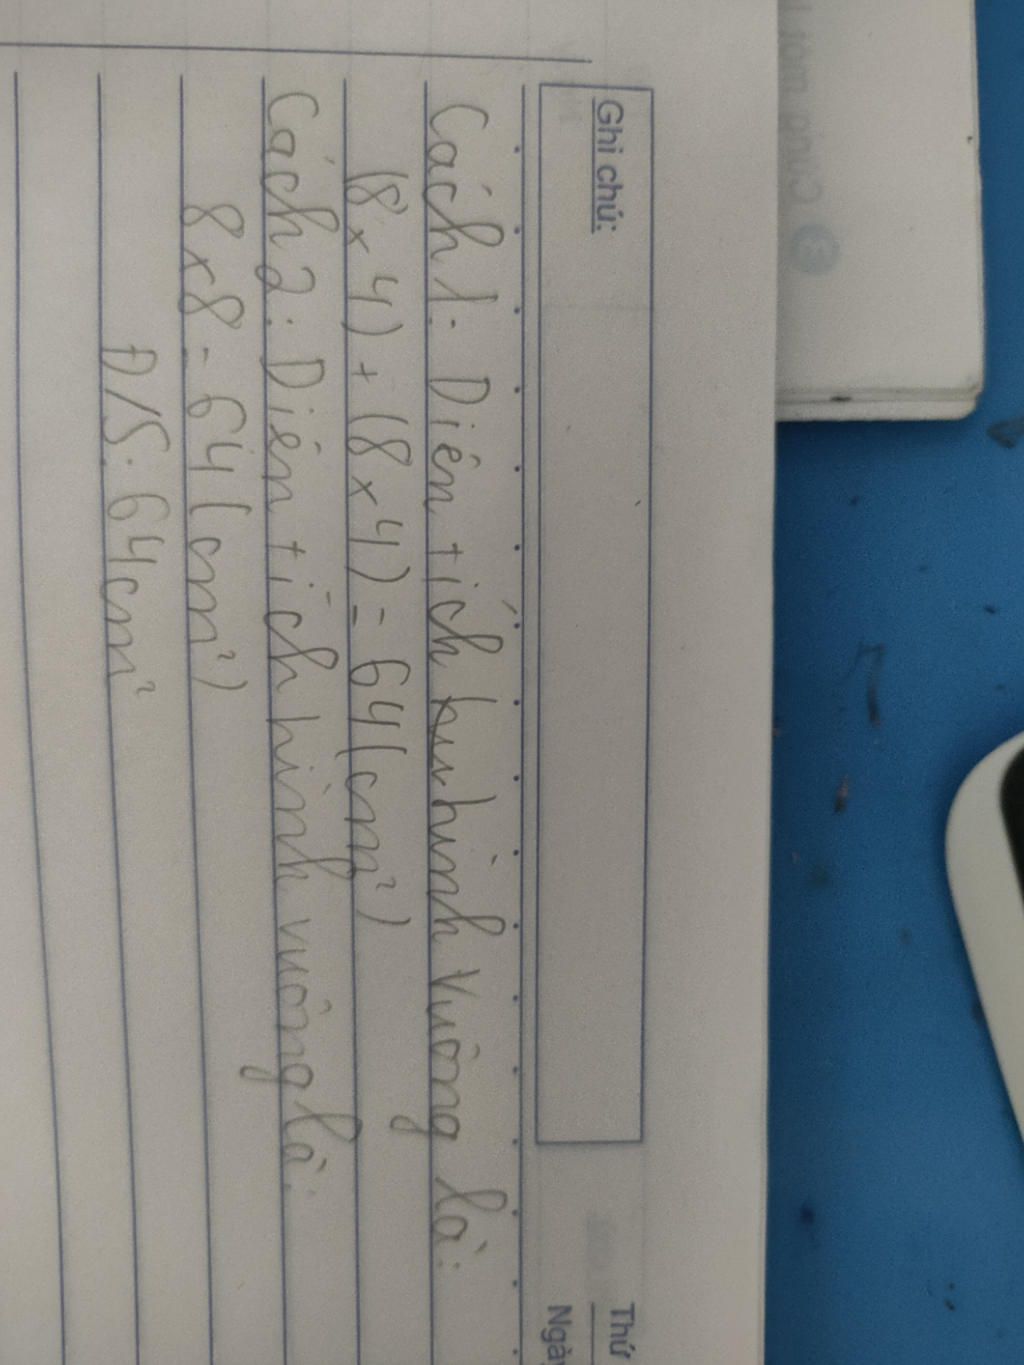 Ghi chú:
Thứ
Cách 1: Diện tích hình vuông là:
(8 x 4) + (8 x 4) = 64 (cm²)
Cách 2: Diện tích hình vuông là:
8 x 8 = 64 (cm²)
Đ/S: 64cm²